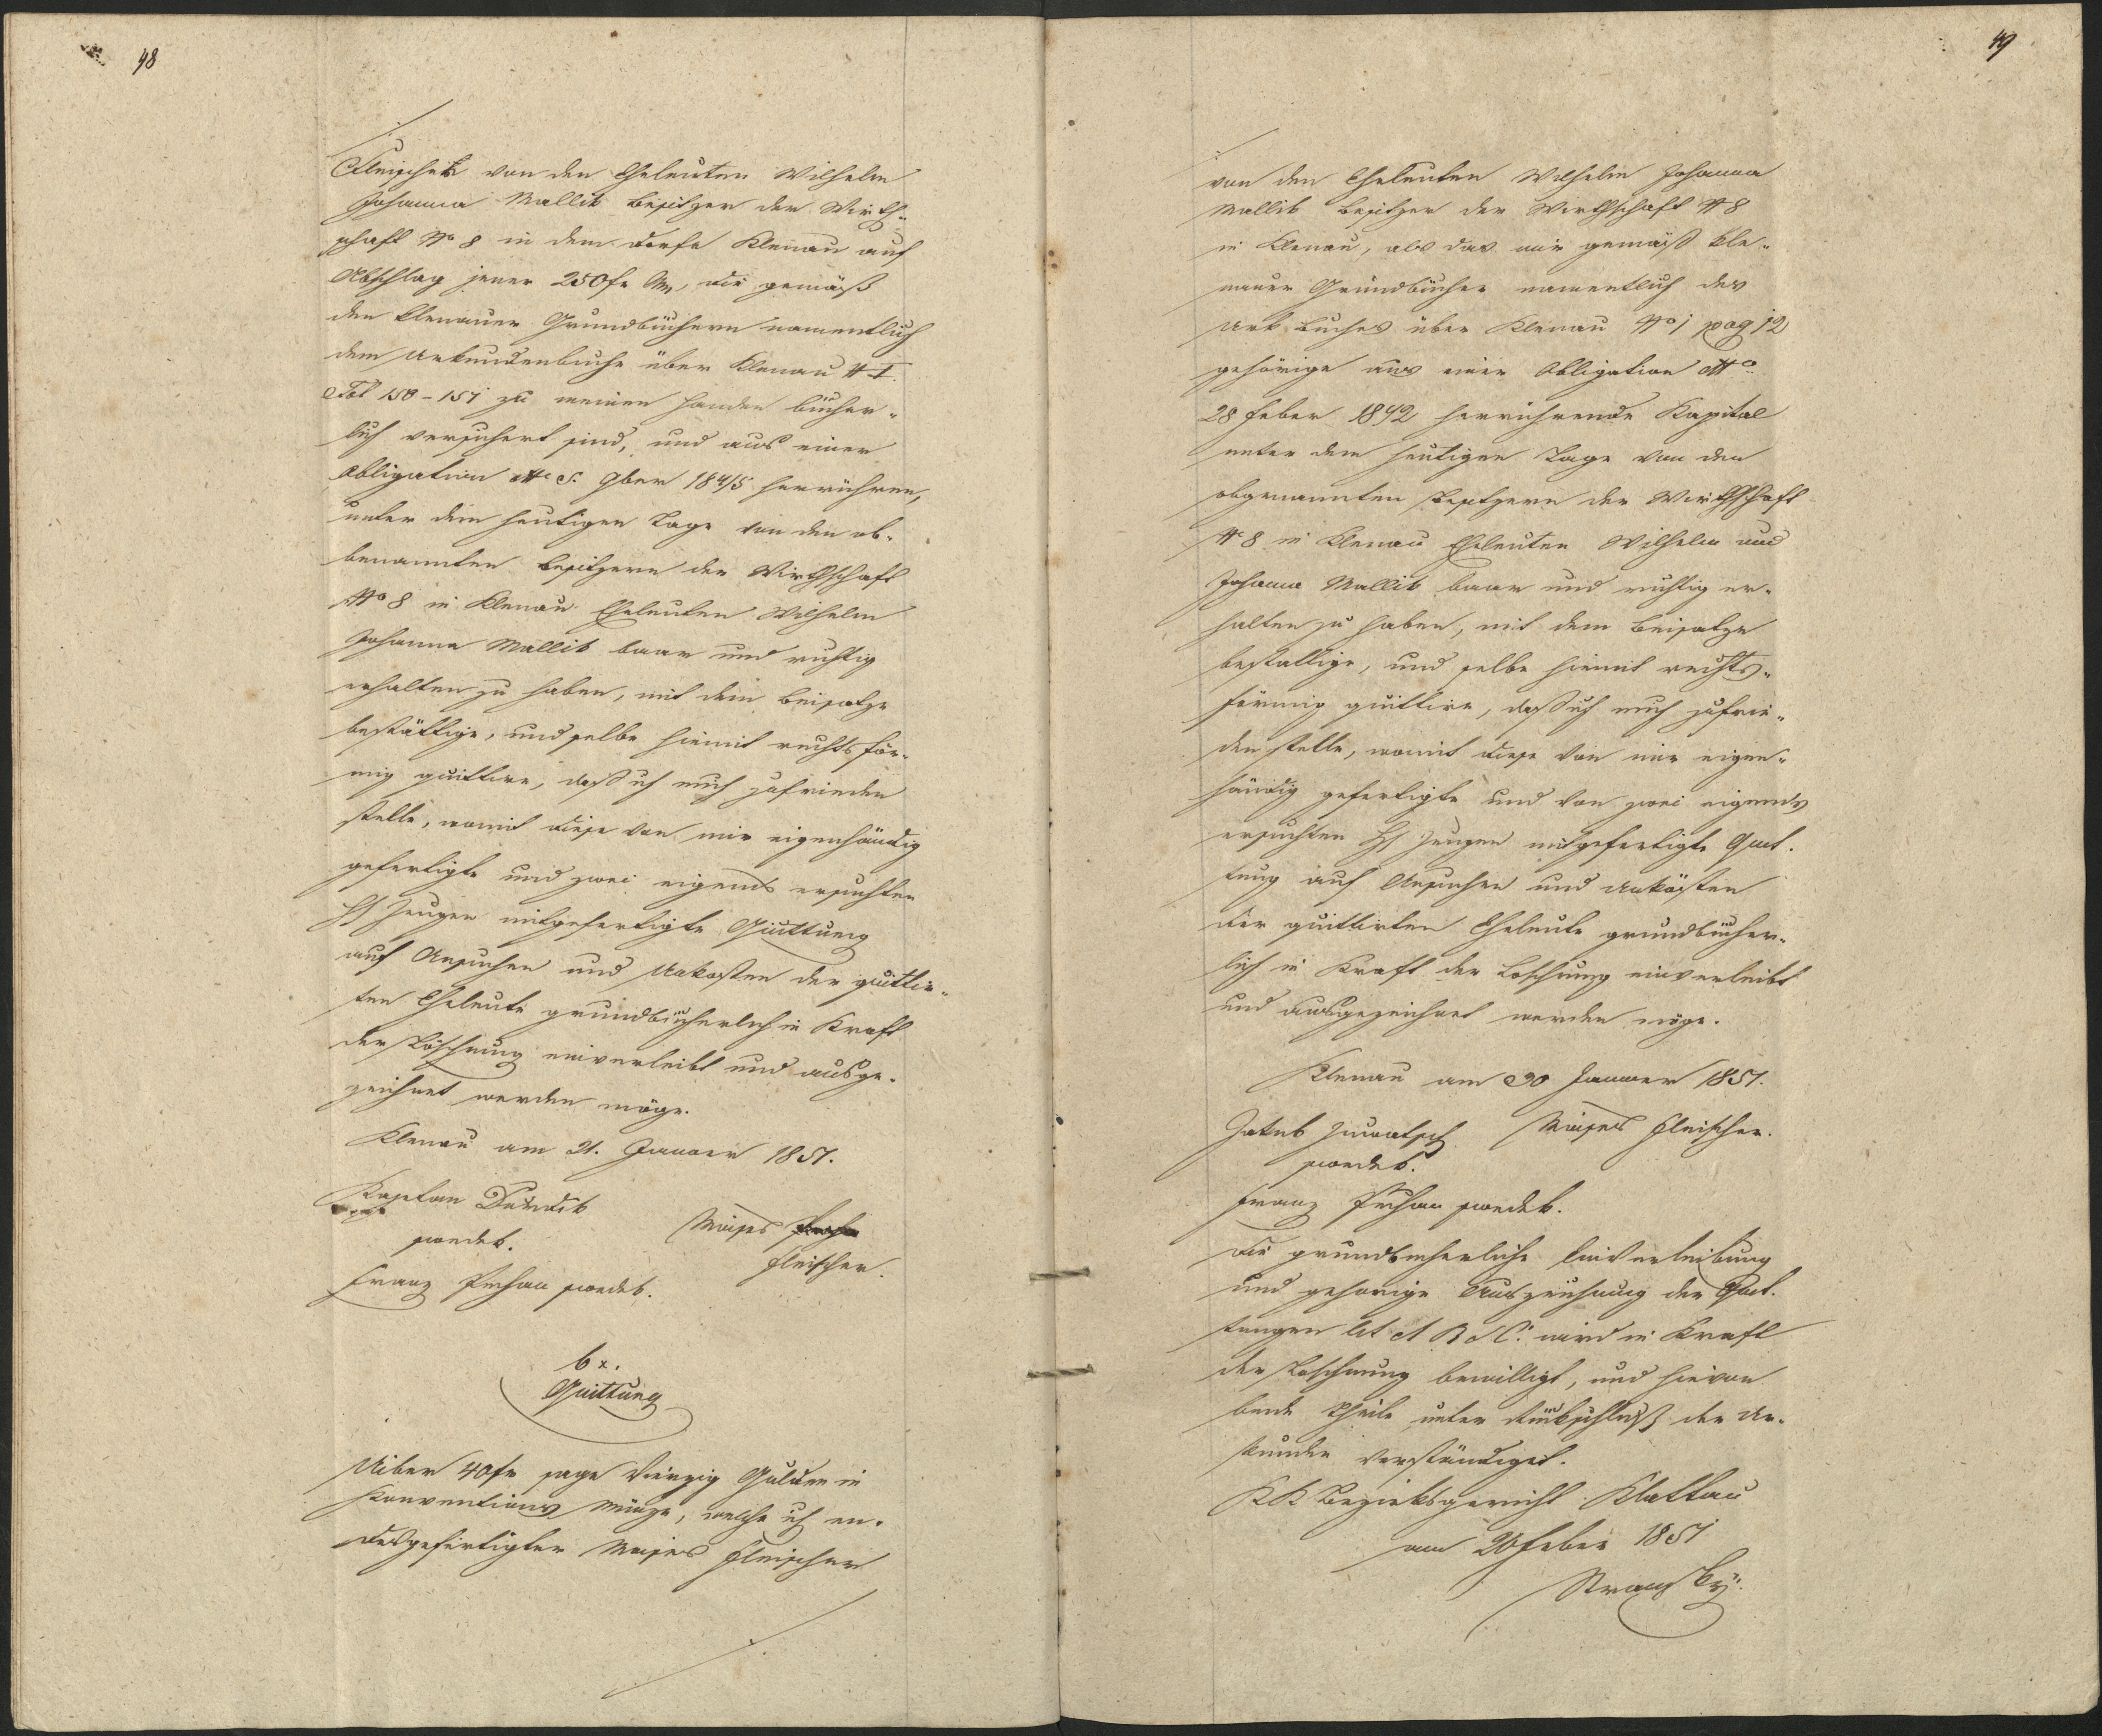 48
Fleischer von den Eheleuten Wilhelm
Johanna Mallik Besitzer der Wirth-
schaft No 8 in dem Dorfe Klenau auf
Abschlag jener 250 fr Mz, die gemäß
den Klenauer Grundbüchern namentlich
dem Urkundenbuche über Klenau # I.
Fol 150-151 zu meinen Handen bücher-
lich versichert sind, und aus einer
Obligation dto 5. 9ber 1845 herrühren,
unter dem heutigen Tage von den ob-
benannten Besitzern der Wirthschaft
No 8 in Klenau Eheleuten Wilhelm
Johanna Mallik baar und richtig
erhalten zu haben, mit dem Beisatze
bestättige, und selbe hiemit rechtsför-
mig quittire, daß ich mich zufrieden
stelle, womit diese von mir eigenhändig
gefertigte und zwei eigends ersuchten
HH Zeugen mitgefertigte Quittung
auf Ansuchen und Unkosten der quittir-
ten Eheleute grundbücherlich in Kraft
der Löschung einverleibt und ausge-
zeichnet werden möge.
Klenau am 21. Januar 1851.
Kaplan
Moises
Fleischer.
Franz Pechau
6x.
Quittung
Uiber 40 fr sage Vierzig Gulden in
Konventions Münze, welche ich en-
desgefertigter Moises Fleischer
49
von den Eheleuten Wilhelm Johanna
Mallik Besitzer der Wirthschaft # 8
in Klenau, als das mir gemäß Kle-
nauer Grundbücher namentlich des
Urk Buches über Klenau No 1 pag 12
gehörige aus einer Obligation dto
28 Feber 1842 herrührende Kapital
unter dem heutigen Tage von den
obgenannten Besitzern der Wirthschaft
No 8 in Klenau Eheleuten Wilhelm und
Johanna Mallik baar und richtig er-
halten zu haben, mit dem Beisatze
bestättige, und selbe hiemit rechts-
förmig quittire, daß ich mich zufrie-
den stelle, womit diese von mir eigen-
händig gefertigte und von zwei eigends
ersuchten HH Zeugen mitgefertigte Quit-
tung auf Ansuchen und Unkösten
der quittirten Eheleute grundbücher-
lich in Kraft der Loschung einverleibt
und ausgezeichnet werden möge.
Klenau am 30 Januar 1851.
Jakob Moises Fleischer.
Franz Pechau
Die grundbucherliche Einverleibung
und gehorige Auszeichnung der Quit-
tungen lit A B & C. wird in Kraft
der Loschnung bewilligt, und hievon
beide Theile unter Rückschluß der Ur-
kunden verständiget.
KK Bezirksgericht Klattau
am 20 Feber 1851
Stransky